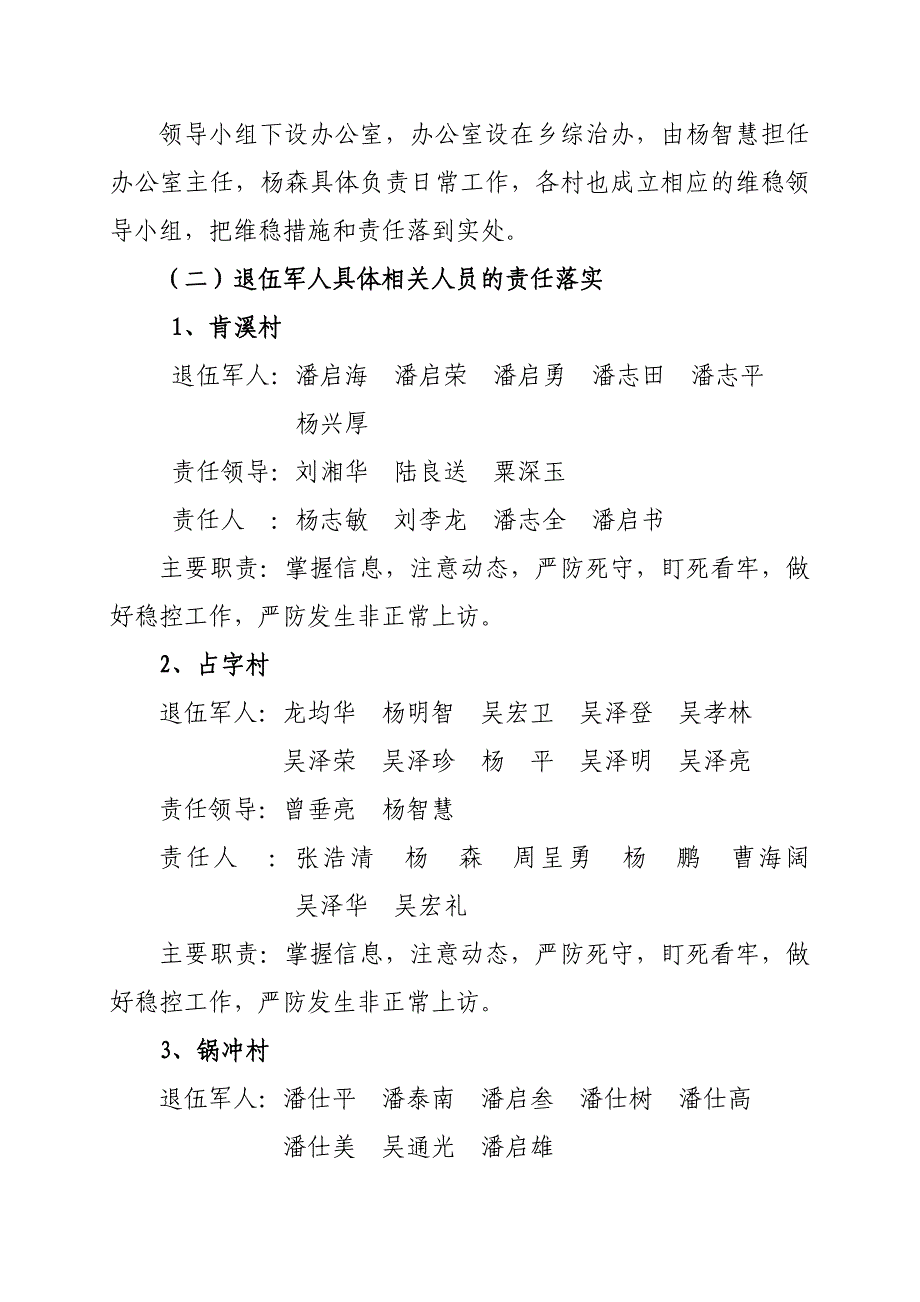 领导小组下设办公室，办公室设在乡综治办，由杨智慧担任
办公室主任，杨森具体负责日常工作，各村也成立相应的维稳领
导小组，把维稳措施和责任落到实处。
（二）退伍军人具体相关人员的责任落实
1、肯溪村
退伍军人：潘启海　潘启荣　潘启勇　潘志田　潘志平
杨兴厚
责任领导：刘湘华　陆良送　粟深玉
责任人　：杨志敏　刘李龙　潘志全　潘启书
主要职责：掌握信息，注意动态，严防死守，盯死看牢，做
好稳控工作，严防发生非正常上访。
2、占字村
退伍军人：龙均华　杨明智　吴宏卫　吴泽登　吴孝林
吴泽荣　吴泽珍　杨　平　吴泽明　吴泽亮
责任领导：曾垂亮　杨智慧
责任人　：张浩清　杨　森　周呈勇　杨　鹏　曹海阔
吴泽华　吴宏礼
主要职责：掌握信息，注意动态，严防死守，盯死看牢，做
好稳控工作，严防发生非正常上访。
3、锅冲村
退伍军人：潘仕平　潘泰南　潘启叁　潘仕树　潘仕高
潘仕美　吴通光　潘启雄